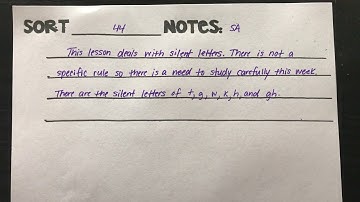 SORT 44 NOTES: SA
This lesson deals with silent letters. There is not a
specific rule so there is a need to study carefully this week.
There are the silent letters of t, g, w, k, h, and gh.